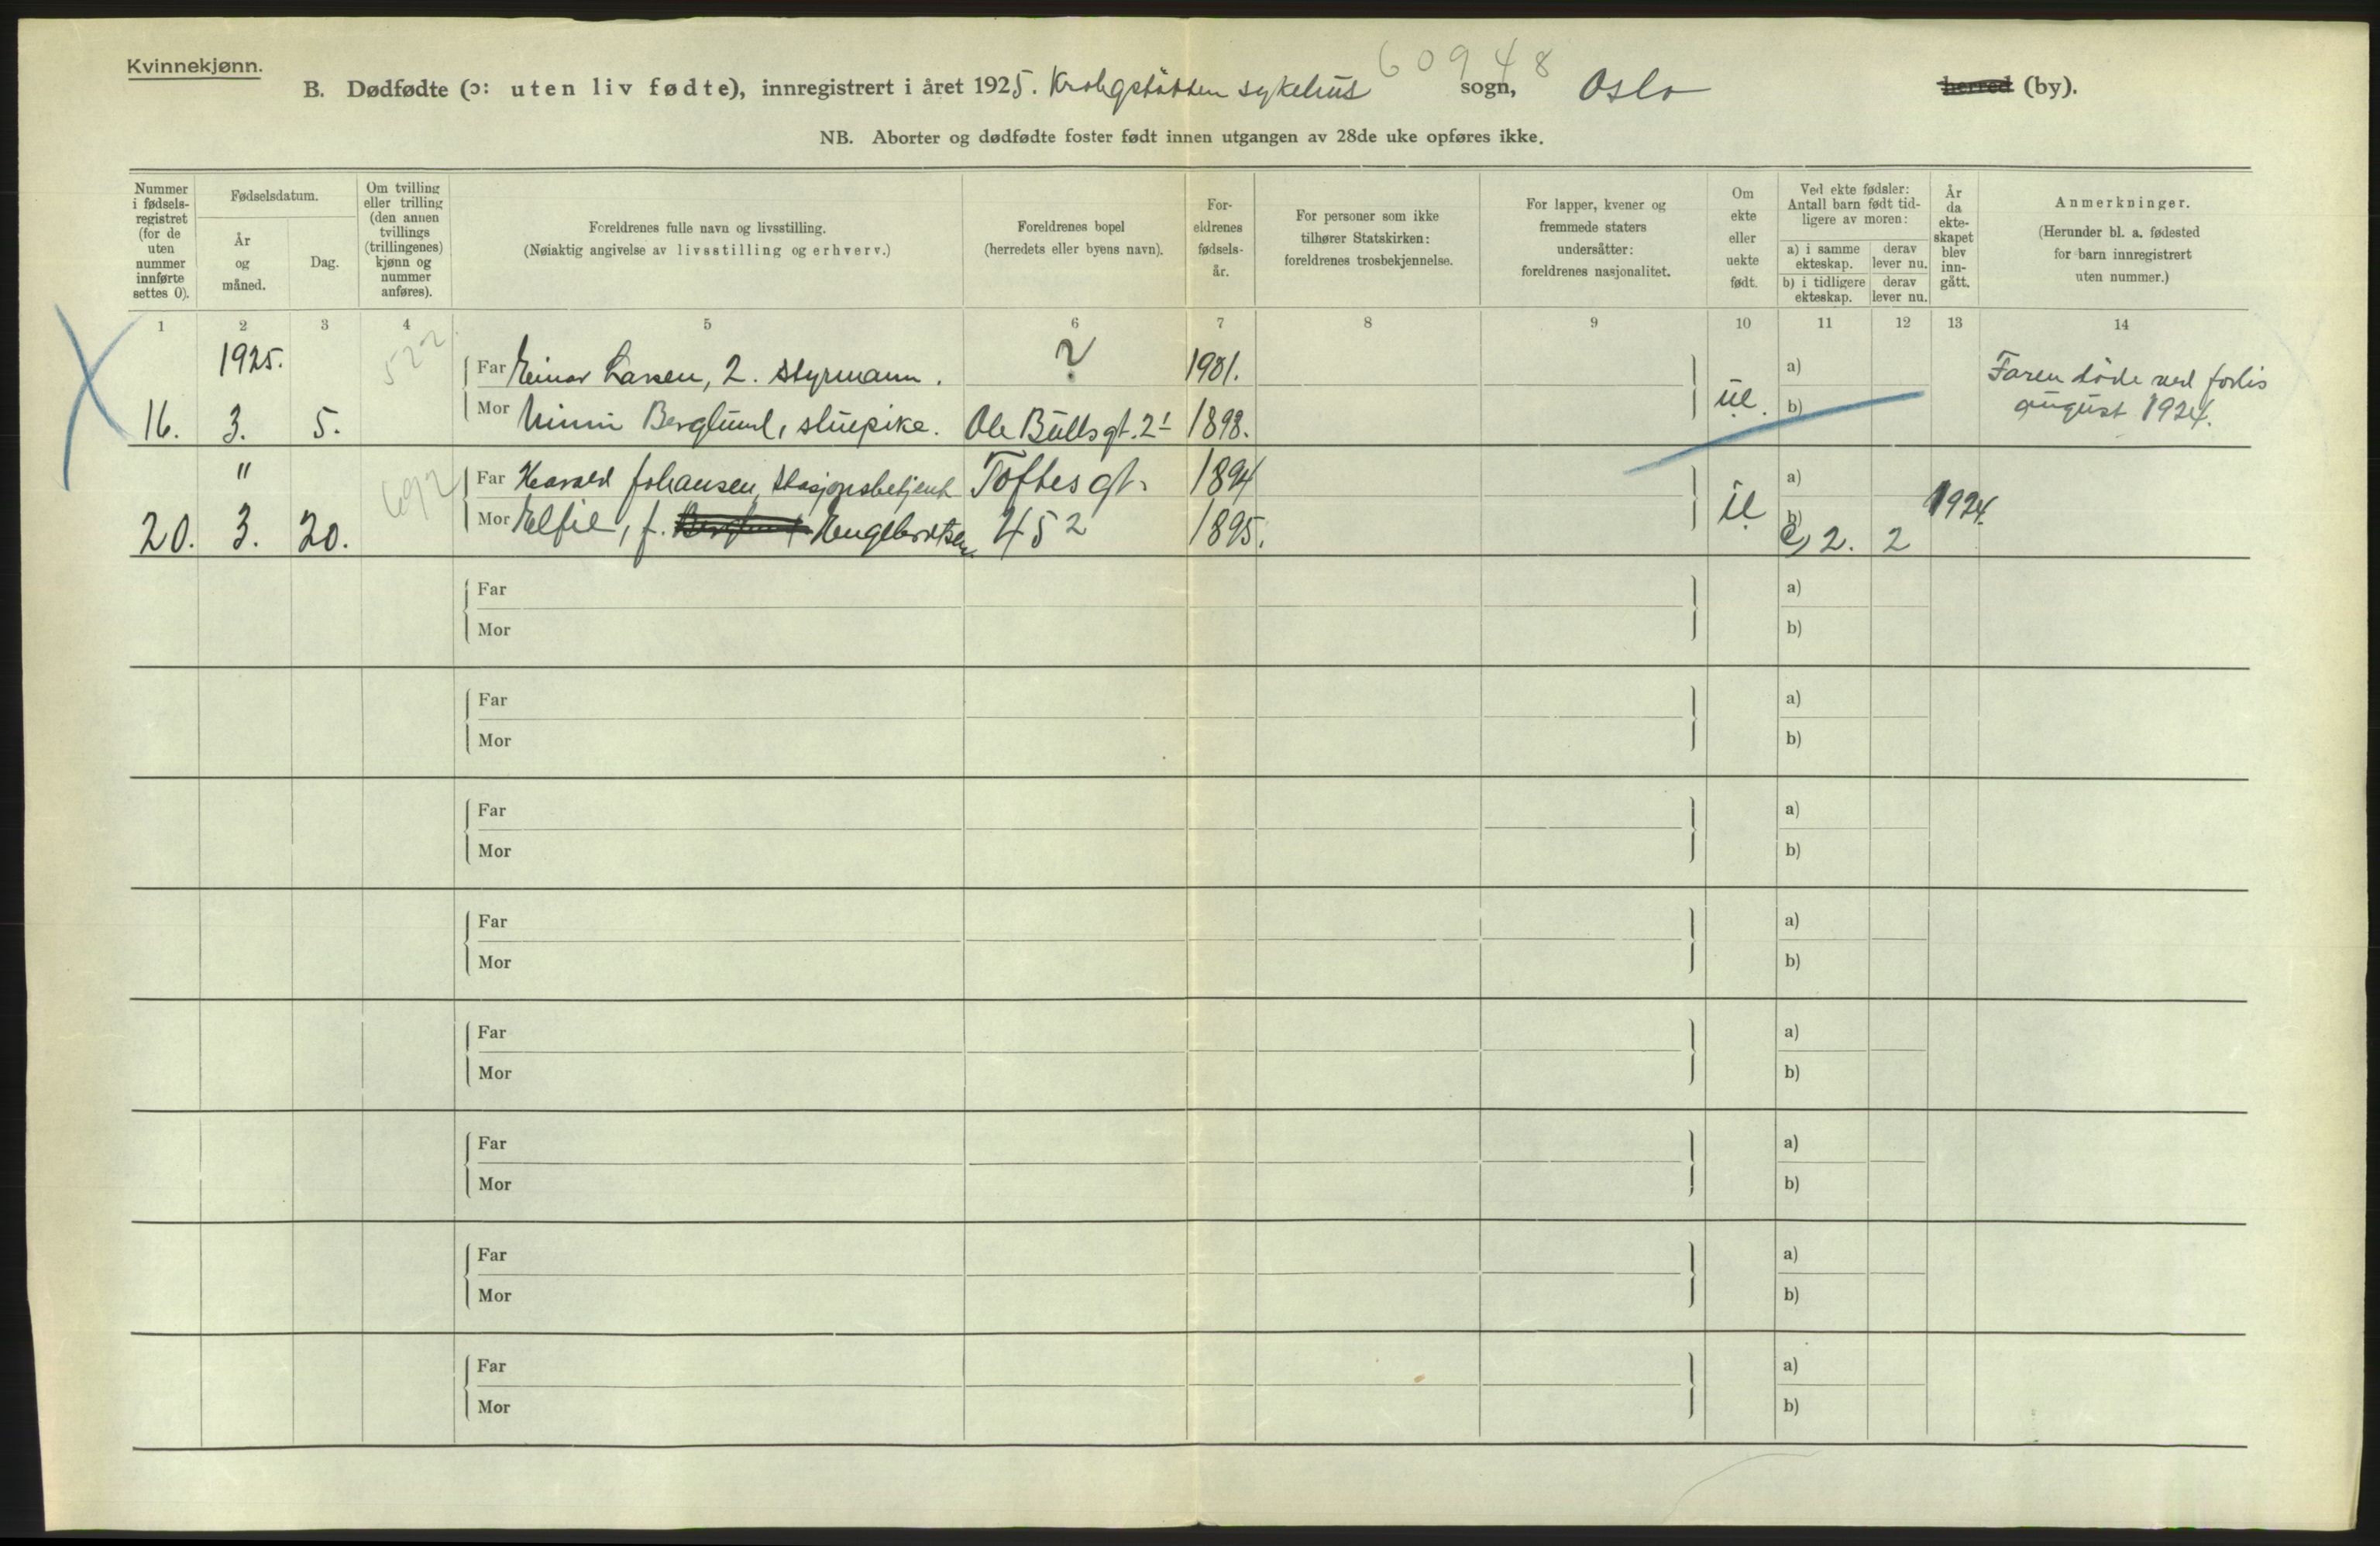 Kvinnekjønn.
60948
B. Dødfødte (ɔ: uten liv fødte), innregistrert i året 1925. Krohgstøtten sykehus sogn, Oslo herred (by).
NB. Aborter og dødfødte foster født innen utgangen av 28de uke opføres ikke.
Nummer i fødsels-registret (for de uten nummer innførte settes 0).
Fødselsdatum.
År og måned.
Dag.
Om tvilling eller trilling (den annen tvillings (trillingenes) kjønn og nummer anføres).
Foreldrenes fulle navn og livsstilling.
(Nøiaktig angivelse av livsstilling og erhverv.)
Foreldrenes bopel
(herredets eller byens navn).
For-eldrenes fødsels-år.
For personer som ikke tilhører Statskirken: foreldrenes trosbekjennelse.
For lapper, kvener og fremmede staters undersåtter: foreldrenes nasjonalitet.
Om ekte eller uekte født.
Ved ekte fødsler: Antall barn født tid-ligere av moren:
a) i samme ekteskap.
derav lever nu.
b) i tidligere ekteskap.
derav lever nu.
År da ekte-skapet blev inn-gått.
Anmerkninger.
(Herunder bl. a. fødested for barn innregistrert uten nummer.)
1 2 3 4 5 6 7 8 9 10 11 12 13 14
1925. 522 Far Einar Larsen, 2. styrmann. ? 1901. a) Faren døde ved forlis
16. 3. 5. Mor Minni Berglund, stuepike. Ole Bullsgt. 2¹ 1898. ue. b) august 1924.
" 692 Far Harald Johansen, stasjonsbetjent Toftesgt. 1894 a)
20. 3. 20. Mor Elfie, f. Engebretsen. 45² 1895. e. b) 1924.
c) 2. 2
Far a)
Mor b)
Far a)
Mor b)
Far a)
Mor b)
Far a)
Mor b)
Far a)
Mor b)
Far a)
Mor b)
Far a)
Mor b)
Far a)
Mor b)